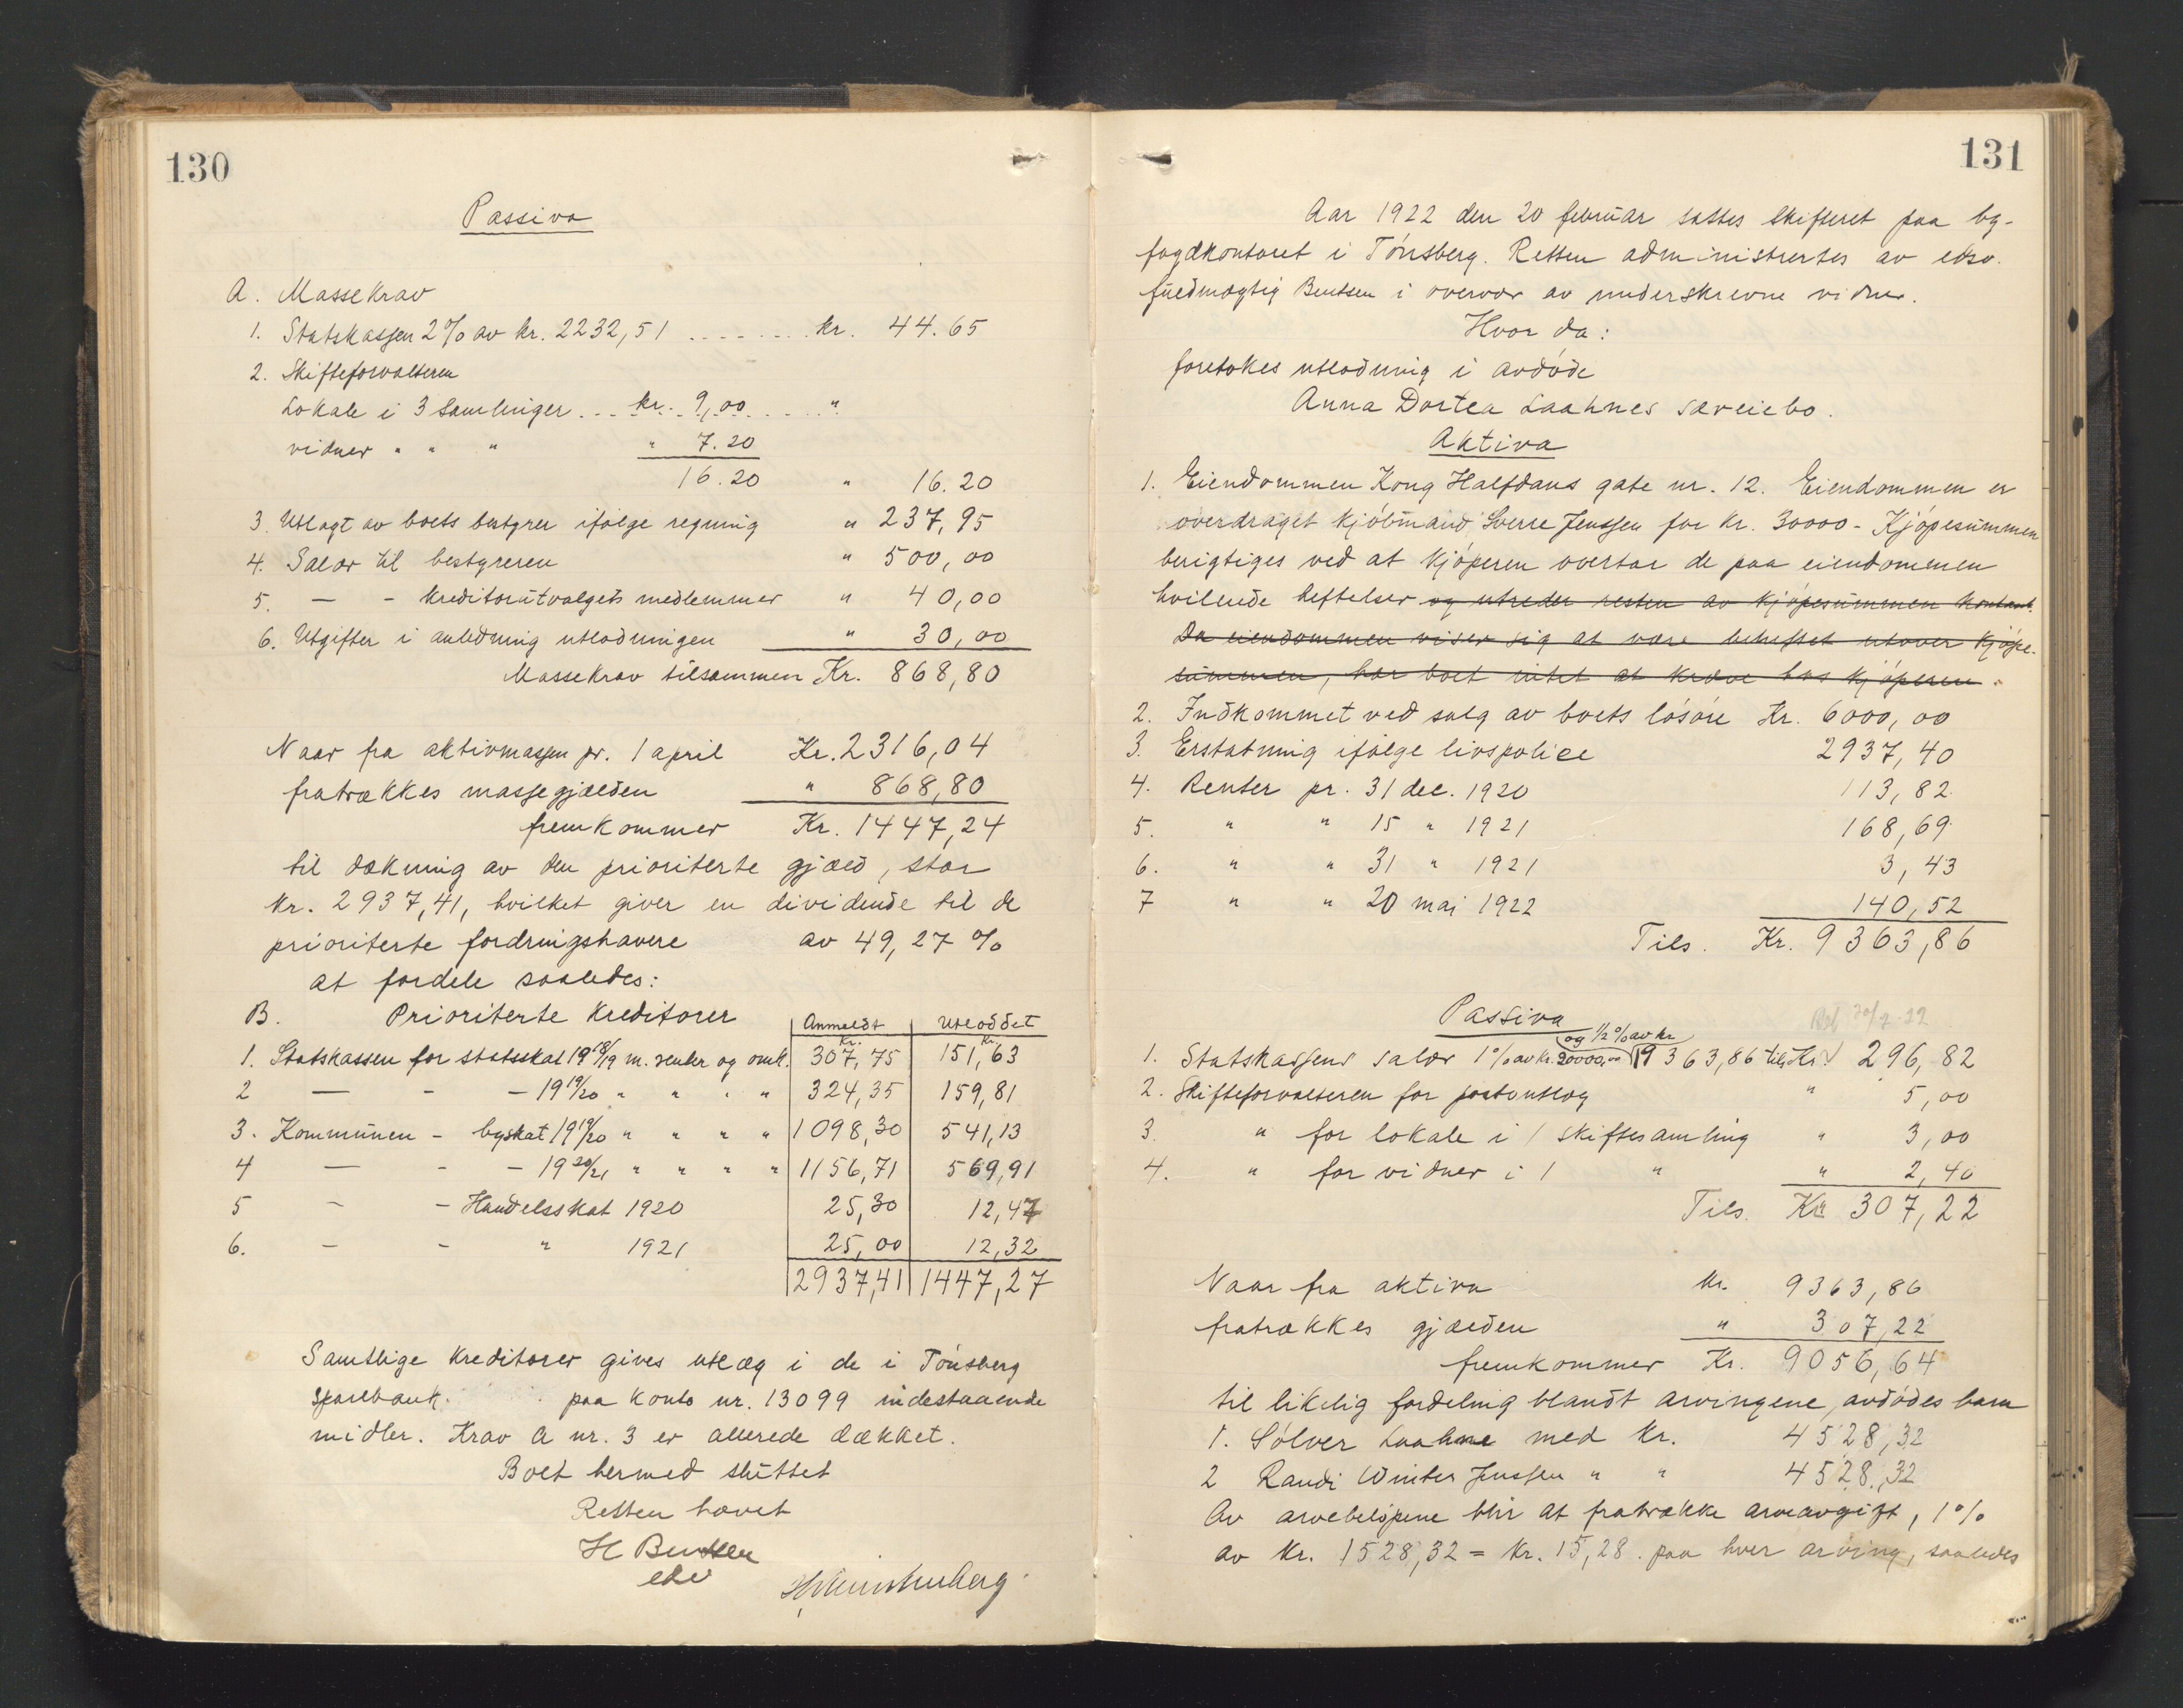 130
Passiva
A. Massekrav
1. Statskassen 2% av kr. 2232,51 ........ kr. 44.65
2. Skifteforvalteren
Lokale i 3 samlinger ... kr. 9,00 ..... "
vidner " " " " 7.20
16.20 " 16.20
3. Utlagt av boets bestyrer ifølge regning " 237,95
4. Salær til bestyreren " 500,00
5. — - kreditorutvalgets medlemmer " 40,00
6. Utgifter i anledning utlodningen " 30,00
Massekrav tilsammen Kr. 868,80
Naar fra aktivmassen pr. 1 april Kr. 2316,04
fratrækkes massegjælden " 868,80
fremkommer Kr. 1447,24
til dækning av den prioriterte gjæld, stor
kr. 2937,41, hvilket giver en dividende til de
prioriterte fordringshavere av 49,27 %
at fordele saaledes:
B. Prioriterte kreditorer Anmeldt Utloddet
1. Statskassen for statsskat 19 18/19 m. renter og omk. Kr. 307,75 Kr. 151,63
2 — - - 19 19/20 " " " " 324,35 159,81
3. Kommunen - byskat 19 19/20 " " " " 1098,30 541,13
4 — - - 19 20/21 " " " " 1156,71 569,91
5 — - Handelsskat 1920 25,30 12,47
6. — - " 1921 25,00 12,32
2937,41 1447,27
Samtlige kreditorer gives utlæg i de i Tønsberg
Sparebank paa konto nr. 13099 indestaaende
midler. Krav A nr. 3 er allerede dækket.
Boet hermed sluttet
Retten hævet
H Bentsen
edsv
131
Aar 1922 den 20 februar sattes skifteret paa by-
fogdkontoret i Tønsberg. Retten administrertes av edsv.
fuldmægtig Bentsen i overvær av underskrevne vidner.
Hvor da:
foretokes utlodning i avdøde
Anna Dortea Laahnes særeiebo.
Aktiva
1. Eiendommen Kong Halfdans gate nr. 12. Eiendommen er
overdraget kjøbmand Sverre Jenssen for kr. 30000 - Kjøpesummen
berigtiges ved at kjøperen overtar de paa eiendommen
hvilende heftelser og utreder resten av kjøpesummen kontant.
Da eiendommen viser sig at være beheftet utover kjøpe-
summen, har boet intet at kræve hos kjøperen.
2. Indkommet ved salg av boets løsøre Kr. 6000,00
3. Erstatning ifølge livspolice 2937,40
4. Renter pr. 31 dec. 1920 113,82
5. " " 15 " 1921 168,69
6. " " 31 " 1921 3,43
7 " " 20 mai 1922 140,52
Tils. Kr. 9363,86
Passiva
og 1/2 % av kr
1. Statskassens salær 1% av kr. 20000,00 19363,86 tils Kr. 296,82
2. Skifteforvalteren for portoutlæg " 5,00
3. " for lokale i 1 skiftesamling " 3,00
4. " for vidner i 1 " " 2,40
Tils. Kr 307,22
Naar fra aktiva kr. 9363,86
fratrækkes gjælden " 307,22
fremkommer Kr. 9056,64
til likelig fordeling blandt arvingene, avdødes barn
1. Sølver Laahne med kr. 4528,32
2 Randi Winter Jenssen " " 4528,32
Av arvebeløpene blir at fratrække arveavgift, 1%
av kr. 1528,32 = kr. 15,28. paa hver arving, saaledes